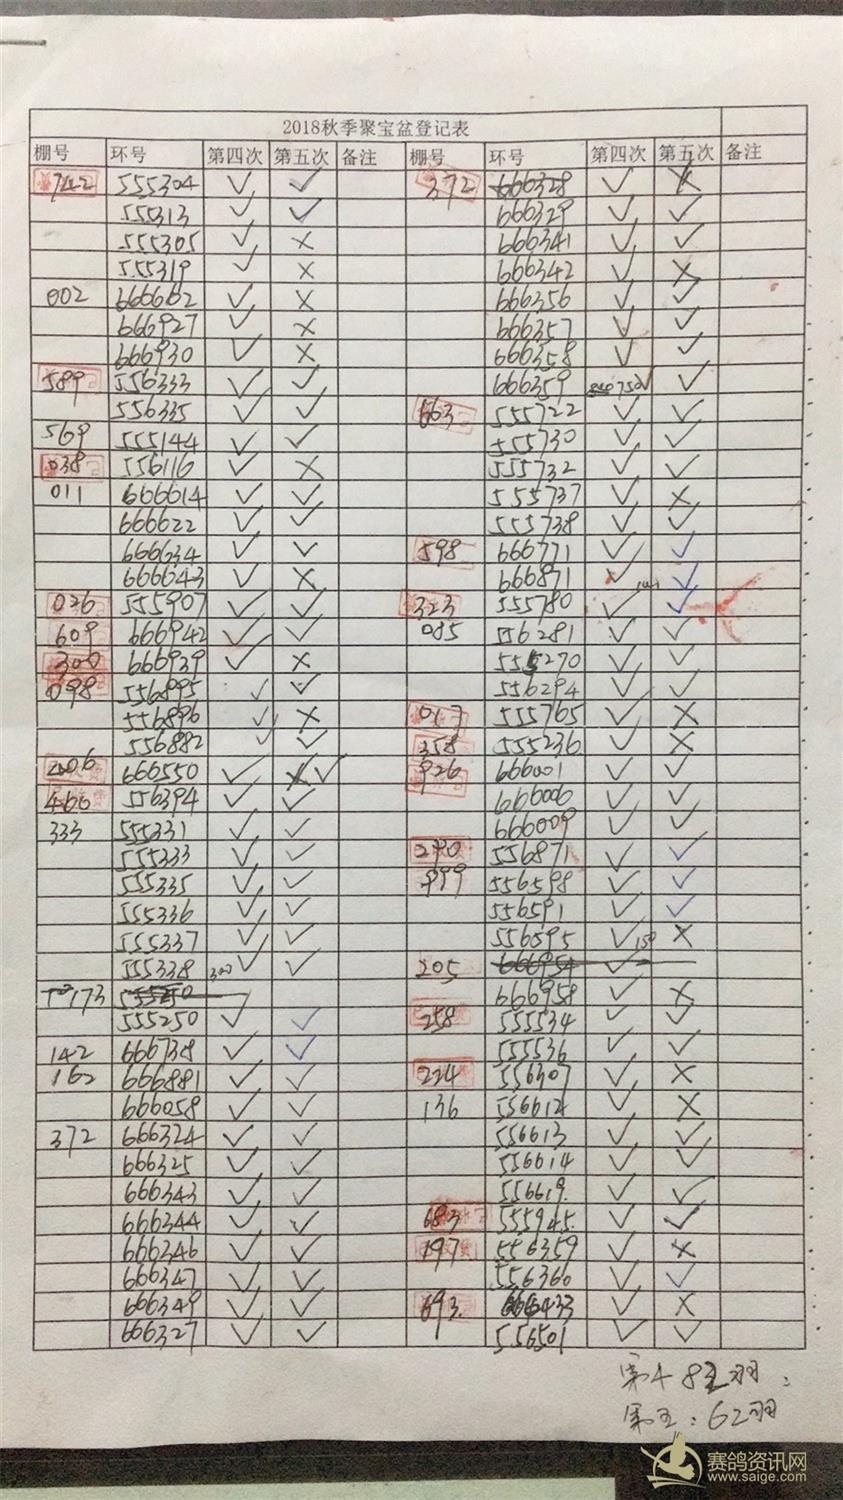 2018秋季聚宝盆登记表
棚号 环号 第四次 第五次 备注 棚号 环号 第四次 第五次 备注
742 555304 ✓ ✓ 372 666328 ✓ ✗
555313 ✓ ✓ 666329 ✓ ✓
555305 ✓ × 666341 ✓ ✓
555319 ✓ × 666342 ✓ ×
002 666602 ✓ × 666356 ✓ ✓
666927 ✓ × 666357 ✓ ✓
666930 ✓ × 666358 ✓ ✓
589 556333 ✓ ✓ 666359 750 ✓ ✓
556335 ✓ ✓ 663 555722 ✓ ✓
569 555144 ✓ ✓ 555730 ✓ ✓
038 556116 ✓ × 555732 ✓ ✓
011 666614 ✓ ✓ 555737 ✓ ×
666622 ✓ ✓ 555738 ✓ ✓
666634 ✓ ✓ 598 666771 ✓ ✓
666643 ✓ × 666871 ✓ ✓
026 555907 ✓ ✓ 323 555780 ✓ ✓
609 666942 ✓ ✓ 085 556281 ✓ ✓
300 666939 ✓ × 555270 ✓ ✓
098 556895 ✓ ✓ 556294 ✓ ✓
556896 ✓ × 017 555765 ✓ ×
556882 ✓ ✓ 358 555236 ✓ ×
006 666550 ✓ × ✓ 926 666001 ✓ ✓
466 556394 ✓ ✓ 666006 ✓ ✓
333 555331 ✓ ✓ 666009 ✓ ✓
555333 ✓ ✓ 290 556871 ✓ ✓
555335 ✓ ✓ 999 556598 ✓ ✓
555336 ✓ ✓ 556591 ✓ ✓
555337 ✓ ✓ 556595 ✓ 150 ×
555338 300 ✓ ✓ 205 666954 ✓
173 666958 ✓ ×
555250 ✓ ✓ 258 555534 ✓ ✓
142 666738 ✓ ✓ 555536 ✓ ✓
162 666881 ✓ ✓ 224 556307 ✓ ×
666058 ✓ ✓ 136 556612 ✓ ×
372 666324 ✓ ✓ 556613 ✓ ✓
666325 ✓ ✓ 556614 ✓ ✓
666343 ✓ ✓ 556619. ✓ ✓
666344 ✓ ✓ 683 555945. ✓ ✓
666346 ✓ ✓ 197 556359 ✓ ×
666347 ✓ ✓ 556360 ✓ ✓
666349 ✓ ✓ 693. 666433 ✓ ×
666327 ✓ ✓ 556501 ✓ ✓
第4 82羽:
第五:62羽
赛鸽资讯网
www.saige.com